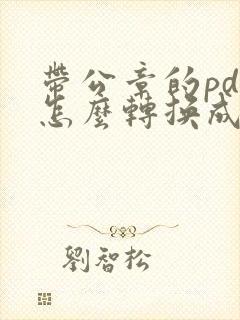 帶公章的pd
怎麼轉換成
劉智松